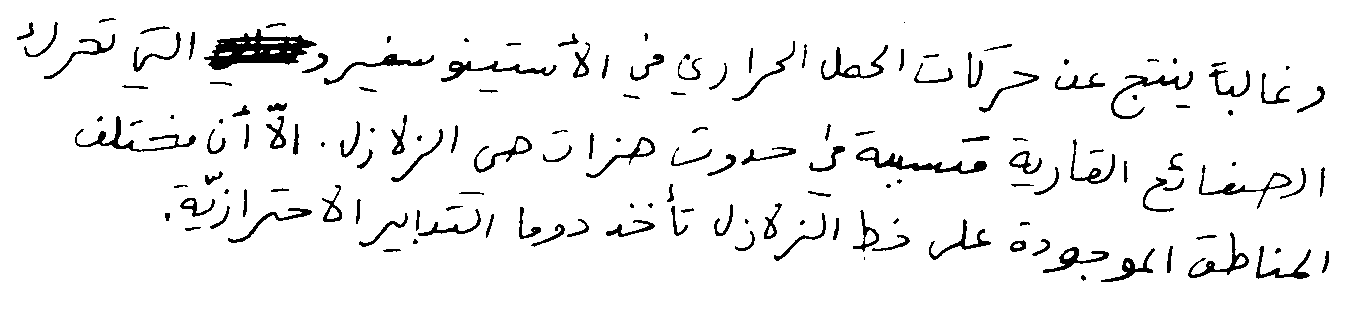 وغالباً ينتج عن حركات الحمل الحراري في الأستينوسفير و التي تحرك
الصفائح القارية متسببة في حدوث هزات هي الزلازل. الاّ أن مختلف
المناطق الموجودة على خط الزلازل تأخذ دوما التدابير الاحترازيّة.